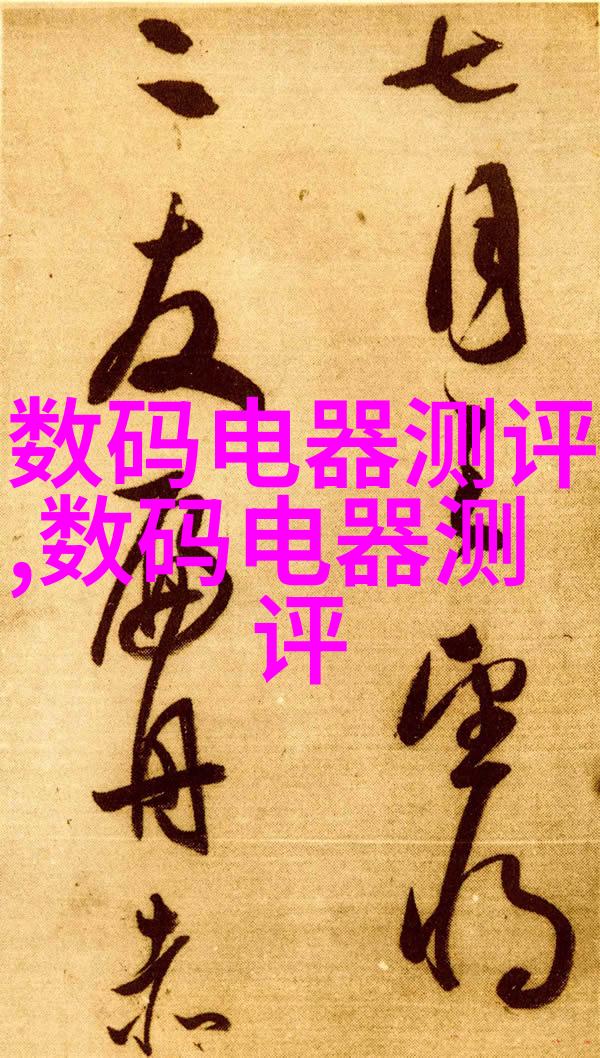 七月望将
二友扁舟赤
数码电器测评
,数码电器测
评